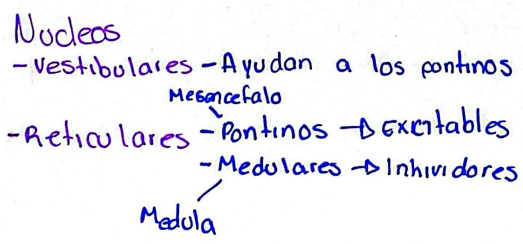 Nucleos
- Vestibulares - Ayudan a los pontinos
Mesencefalo
- Reticulares - Pontinos → Excitables
- Medulares → Inhividores
Medula